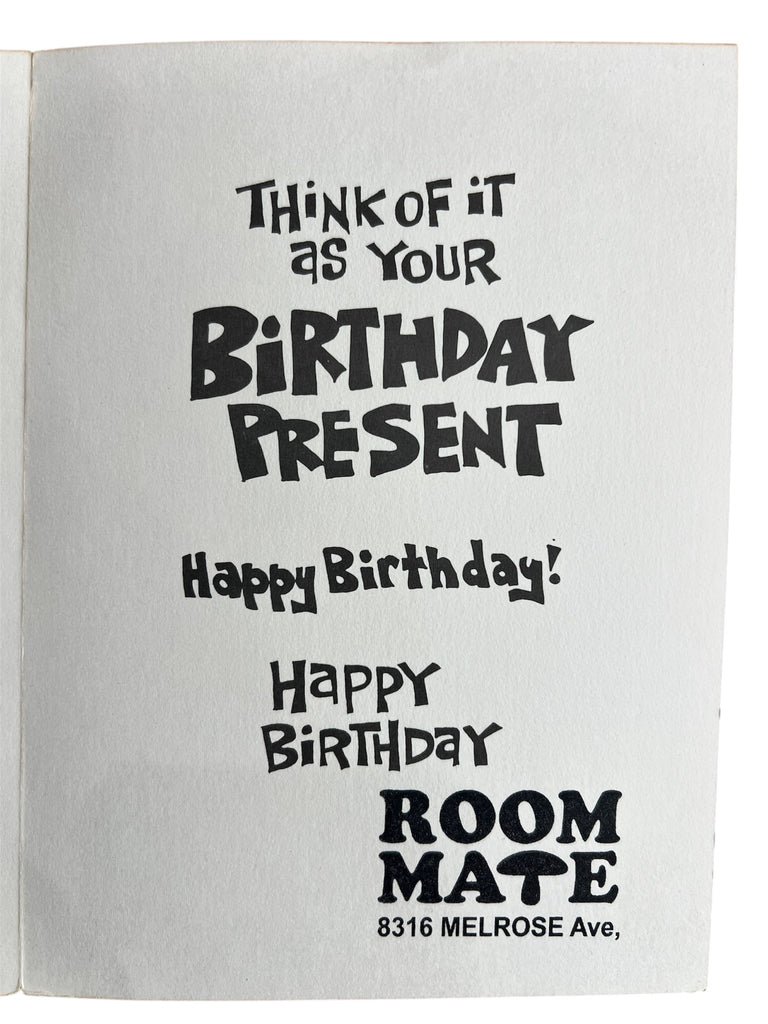 THiNK OF iT
as YOUR
BiRTHDAY
PRESENT
Happy Birthday!
HaPPY
BiRTHDaY
ROOM
MATE
8316 MELROSE Ave,